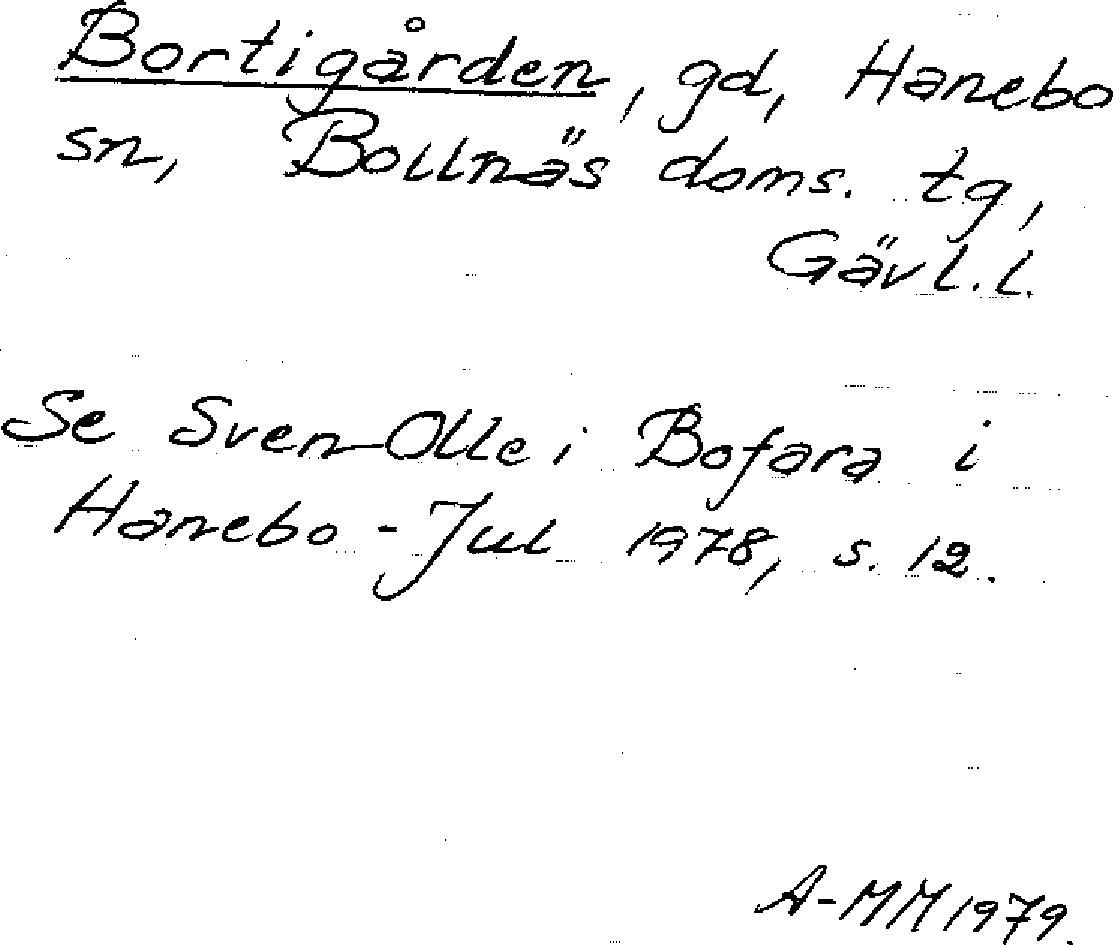 Bortigården, gd, Hanebo
sn, Bollnäs doms. tg,
Gävl. l.
Se Sven-Olle i Bofara i
Hanebo - Jul 1978, s. 12.
A-MM 1979.